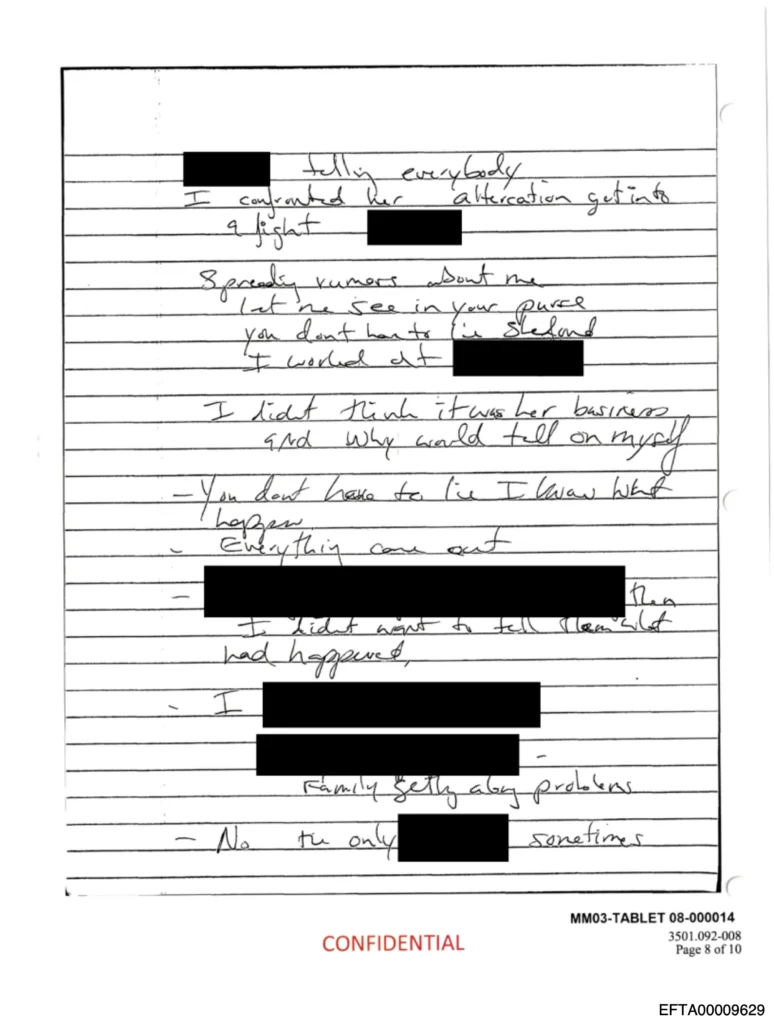 telling everybody
I confronted her altercation get into
a fight
Spreading rumors about me
let me see in your purse
you don't have to lie She found
I worked at
I didn't think it was her business
and why would tell on myself
- You don't have to lie I know what
happen
- Everything came out
- then
I didn't want to tell them what
had happened,
- I
-
Family getting along problems
- No the only sometimes
MM03-TABLET 08-000014
3501.092-008
Page 8 of 10
CONFIDENTIAL
EFTA00009629